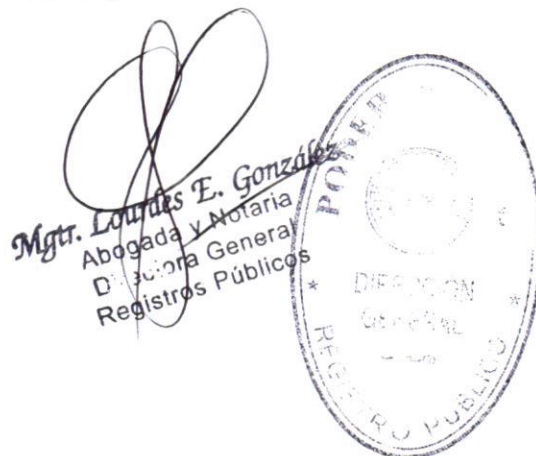 Mgtr. Lourdes E. González
Abogada y Notaria
Directora General
Registros Públicos
PODER
DIRECCION
GENERAL
* REGISTRO PUBLICO *